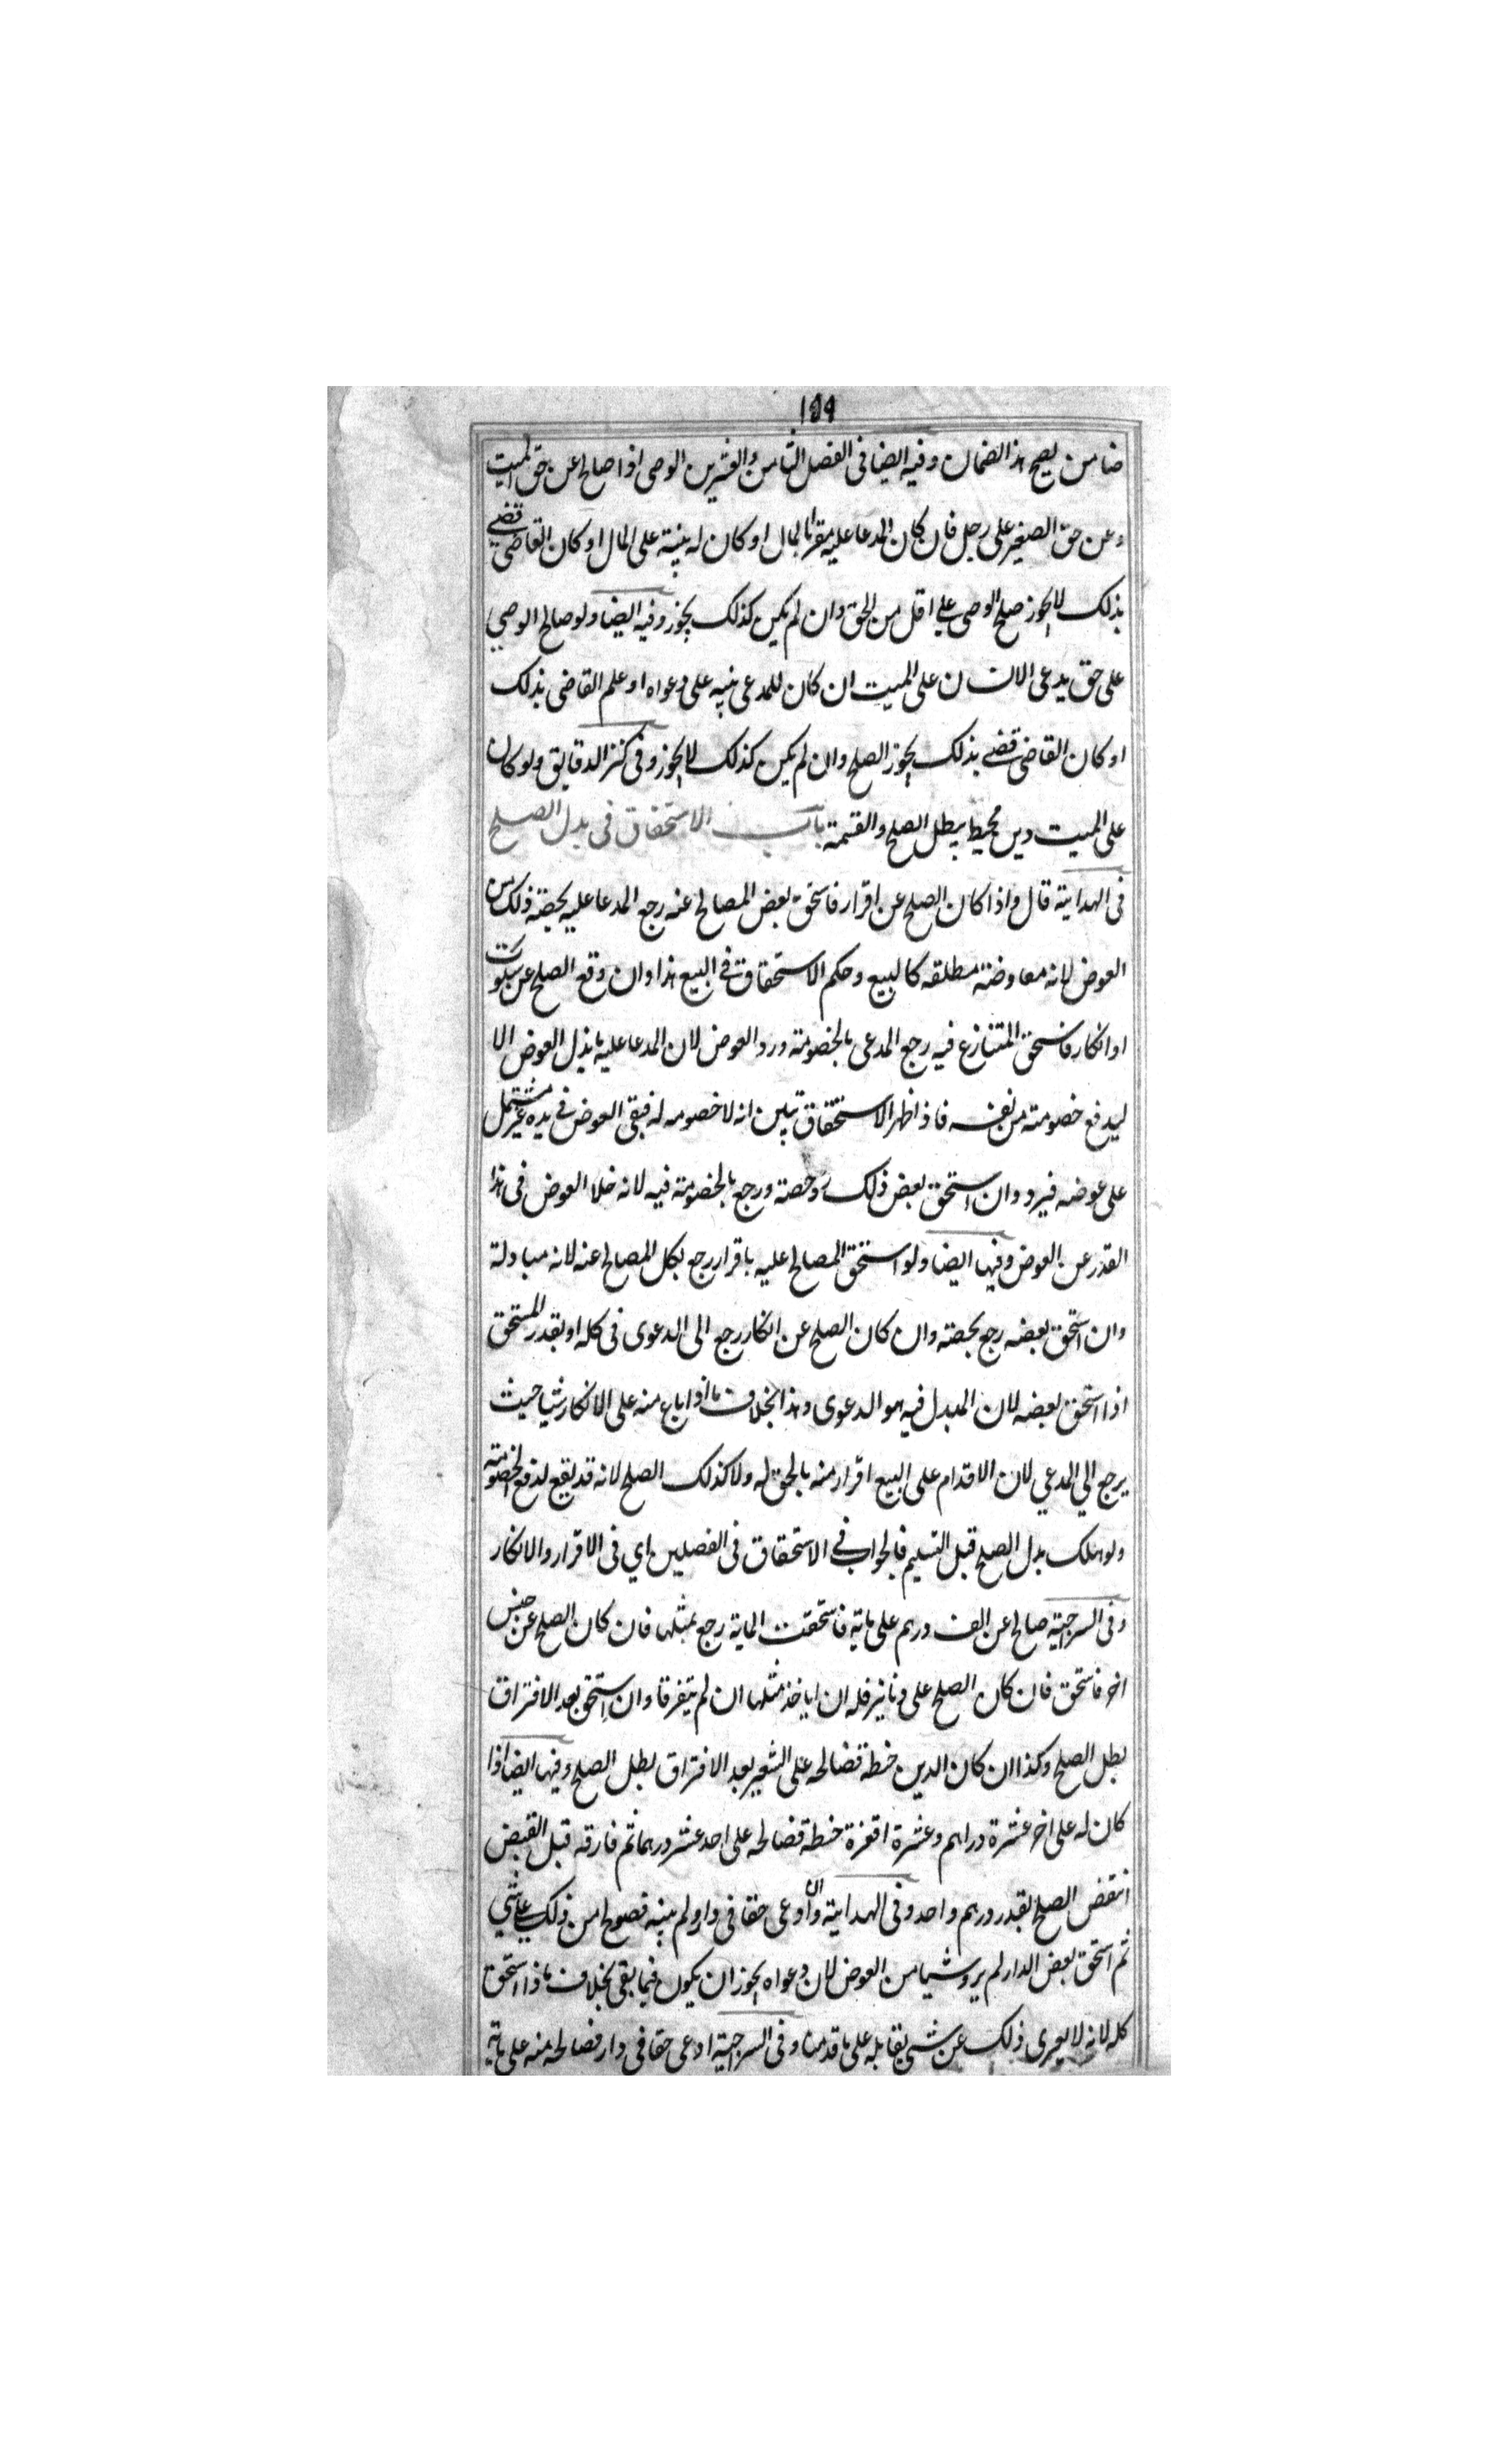 ١٥٩
ضامن يصح هذا الضمان وفيه ايضا فى الفصل الثامن والعشرين الوصى اذا صالح عن حق الميت
وعن حق الصغير على رجل فان كان المدعا عليه مقرا بالمال او كان له بينة على المال او كان القاضى قضى
بذلك لا يجوز صلح الوصى على اقل من الحق وان لم يكن كذلك يجوز وفيه ايضا ولو صالح الوصي
على حق يدعى الانسان على الميت ان كان للمدعى بينه على دعواه او علم القاضى بذلك
او كان القاضى قضى بذلك يجوز الصلح وان لم يكن كذلك لا يجوز وفى كنز الدقايق ولو كان
على الميت دين محيط يبطل الصلح والقسمة باب الاستحقاق فى بدل الصلح
فى الهداية قال واذا كان الصلح عن اقرار فاستحق بعض المصالح عنه رجع المدعا عليه بحصة ذلك من
العوض لانه معاوضة مطلقه كالبيع وحكم الاستحقاق في البيع هذا وان وقع الصلح عن سكوت
او انكار فاستحق المتنازع فيه رجع المدعى بالخصومة ورد العوض لان المدعا عليه ما بذل العوض الا
ليدفع خصومته من نفسه فاذا ظهر الاستحقاق تبين انه لا خصومه له فبقى العوض في يده غير مشتمل
على عوضه فيرد وان استحق بعض ذلك رد حصته ورجع بالخصومة فيه لانه خلا العوض فى هذا
القدر عن العوض وفيها ايضا ولو استحق المصالح عليه باقرار رجع بكل المصالح عنه لانه مبادلة
وان استحق بعضه رجع بحصته وان كان الصلح عن انكار رجع الى الدعوى فى كله او بقدر المستحق
اذا استحق بعضه لان المبدل فيه هو الدعوى وهذا بخلاف ما اذا باع منه على الانكار شيا حيث
يرجع الي المدعي لان الاقدام على البيع اقرار منه بالحق له ولا كذلك الصلح لانه قد يقع لدفع الخصومة
ولو هلك بدل الصلح قبل التسليم فالجواب في الاستحقاق فى الفصلين اي فى الاقرار والانكار
وفى السراجية صالح عن الف درهم على ماية فاستحقت الماية رجع بمثلها فان كان الصلح عن جنس
اخر فاستحق فان كان الصلح على دنانير فله ان ياخذ مثلها ان لم يتفرقا وان استحق بعد الافتراق
بطل الصلح وكذا ان كان الدين حنطة فصالحه على الشعير بعد الافتراق بطل الصلح وفيها ايضا اذا
كان له على اخر عشرة دراهم وعشرة اقفزة حنطة فصالحه على احد عشر درهما ثم فارقه قبل القبض
انتقض الصلح بقدر درهم واحد وفى الهداية وان ادعى حقا فى دار ولم يبينه فصولح من ذلك على شي
ثم استحق بعض الدار لم يرد شيا من العوض لان دعواه يجوز ان يكون فيما بقى بخلاف ما اذا استحق
كله لانه لا يعرى ذلك عن شي يقابله على ما قدمنا وفى السراجية ادعى حقا فى دار فصالحه منه على ماية